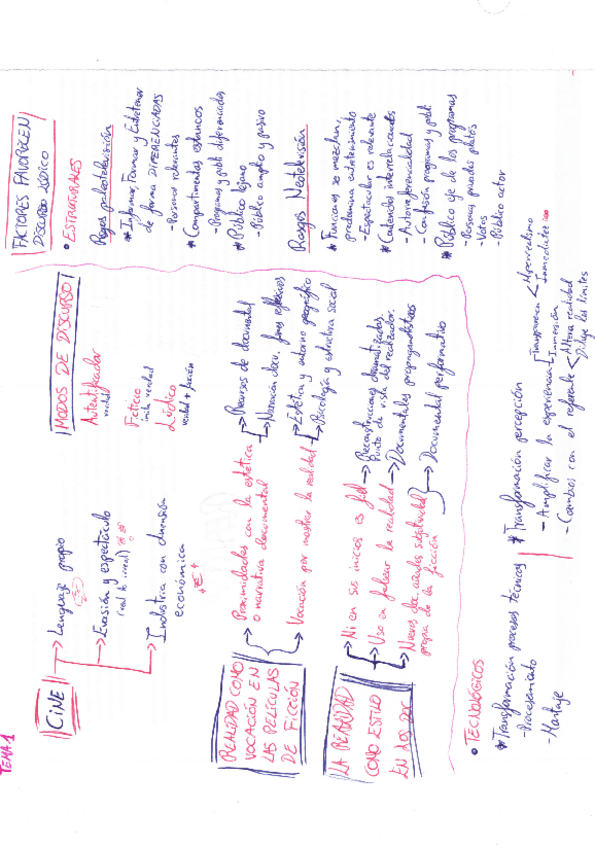 TEMA 1
CINE
→ Lenguaje propio
→ Evasión y espectáculo
→ Industria con dimensión
económica
MODOS DE DISCURSO
Autentificador
verdad
Ficticio
Lúdico
verdad + ficción
REALIDAD COMO
VOCACIÓN EN
LAS PELÍCULAS
DE FICCIÓN
→ Proximidades con la estética
o narrativa documental
→ Recursos de documental
→ Vocación por mostrar la realidad
→ Estética y entorno geográfico
→ Psicología y estructura social
LA REALIDAD
COMO ESTILO
EN LOS DOC
→ Ni en sus inicios es fiel
→ Reconstrucciones dramatizadas
Punto de vista del realizador.
→ Uso en falsear la realidad
→ Documentales propagandísticos
→ Nuevos doc. añaden subjetividad
propia de la ficción
→ Documental performativo
FACTORES FAVORECEN
DISCURSO LÚDICO
• ESTRUCTURALES
Rasgos paleotelevisión
* Informar, Formar y Entretener
de forma DIFERENCIADAS
* Compartimentos estancos
- Programas y publi diferenciados
* Público lejano
- Público amplio y pasivo
Rasgos Neotelevisión
* Funciones se mezclan,
predomina entretenimiento
- Espectacular es relevante
* Contenidos interrelacionados
- Autorreferencialidad
- Confusión programas y publi
* Público eje de los programas
- Votos
- Público actor
• TECNOLÓGICOS
* Transformación procesos técnicos
- Procesamiento
- Montaje
* Transformación percepción
- Amplificar la experiencia
Transparencia
Hiperrealismo
Inmediatez
Inmersión
- Cambios con el referente
Altera realidad
Diluye los límites